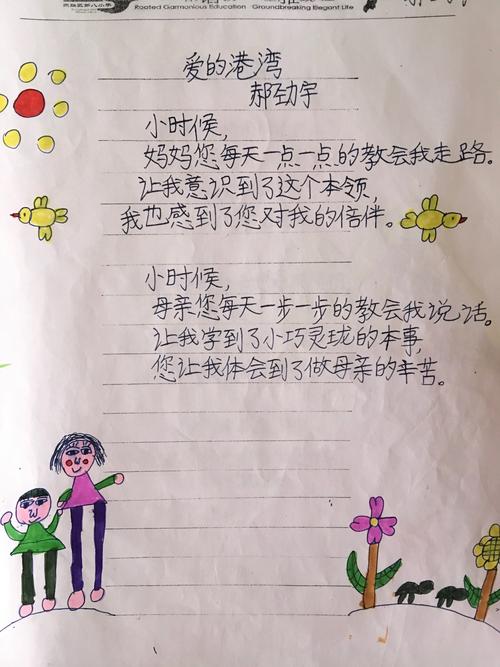 Rooted Garmonious Education Groundbreaking Begant Life
爱的港湾
郝劲宇
小时候,
妈妈您每天一点一点的教会我走路。
让我意识到了这个本领,
我也感到了您对我的倍伴。
小时候,
母亲您每天一步一步的教会我说话。
让我学到了小巧灵珑的本事,
您让我体会到了做母亲的辛苦。